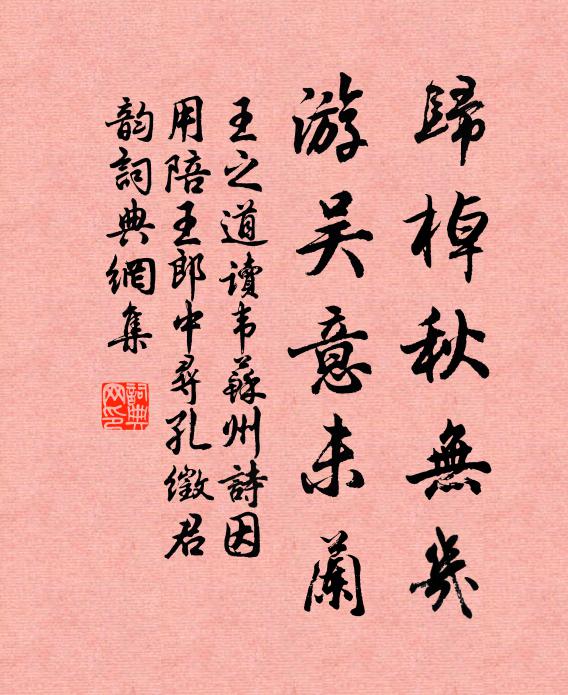 歸棹秋無幾
游吴意未闌
王之道讀韦蘇州詩因
用陪王郎中尋孔徵君
韵詞典網集
詞典網印